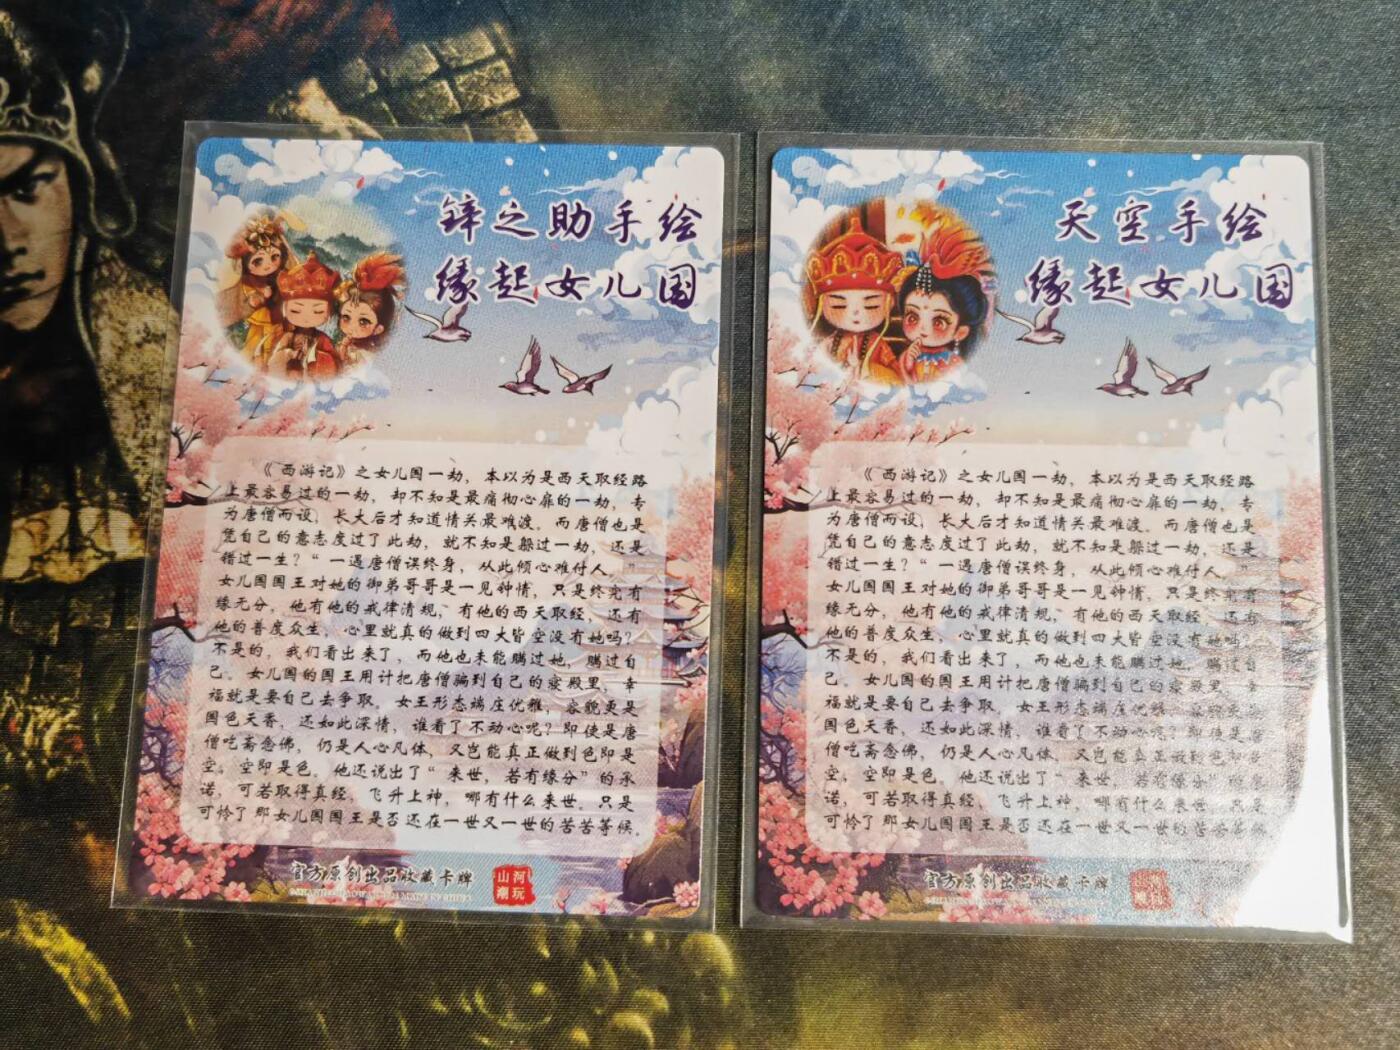 锌之助手绘
缘起女儿国
《西游记》之女儿国一劫，本以为是西天取经路
上最容易过的一劫，却不知是最痛彻心扉的一劫，专
为唐僧而设，长大后才知道情关最难渡。而唐僧也是
凭自己的意志度过了此劫，就不知是躲过一劫，还是
错过一生？“一遇唐僧误终身，从此倾心难付人。”
女儿国国王对她的御弟哥哥是一见钟情，只是终究有
缘无分，他有他的戒律清规，有他的西天取经，还有
他的普度众生，心里就真的做到四大皆空没有她吗？
不是的，我们看出来了，而他也未能瞒过她，瞒过自
己。女儿国的国王用计把唐僧骗到自己的寝殿里，幸
福就是要自己去争取，女王形态端庄优雅，容貌更是
国色天香，还如此深情，谁看了不动心呢？即使是唐
僧吃斋念佛，仍是人心凡体，又岂能真正做到色即是
空，空即是色。他还说出了“来世，若有缘分”的承
诺，可若取得真经，飞升上神，哪有什么来世。只是
可怜了那女儿国国王是否还在一世又一世的苦苦等候。
官方原创出品收藏卡牌
山河
潮玩
天空手绘
缘起女儿国
《西游记》之女儿国一劫，本以为是西天取经路
上最容易过的一劫，却不知是最痛彻心扉的一劫，专
为唐僧而设，长大后才知道情关最难渡。而唐僧也是
凭自己的意志度过了此劫，就不知是躲过一劫，还是
错过一生？“一遇唐僧误终身，从此倾心难付人。”
女儿国国王对她的御弟哥哥是一见钟情，只是终究有
缘无分，他有他的戒律清规，有他的西天取经，还有
他的普度众生，心里就真的做到四大皆空没有她吗？
不是的，我们看出来了，而他也未能瞒过她，瞒过自
己。女儿国的国王用计把唐僧骗到自己的寝殿里，幸
福就是要自己去争取，女王形态端庄优雅，容貌更是
国色天香，还如此深情，谁看了不动心呢？即使是唐
僧吃斋念佛，仍是人心凡体，又岂能真正做到色即是
空，空即是色。他还说出了“来世，若有缘分”的承
诺，可若取得真经，飞升上神，哪有什么来世。只是
可怜了那女儿国国王是否还在一世又一世的苦苦等候。
官方原创出品收藏卡牌
山河
潮玩